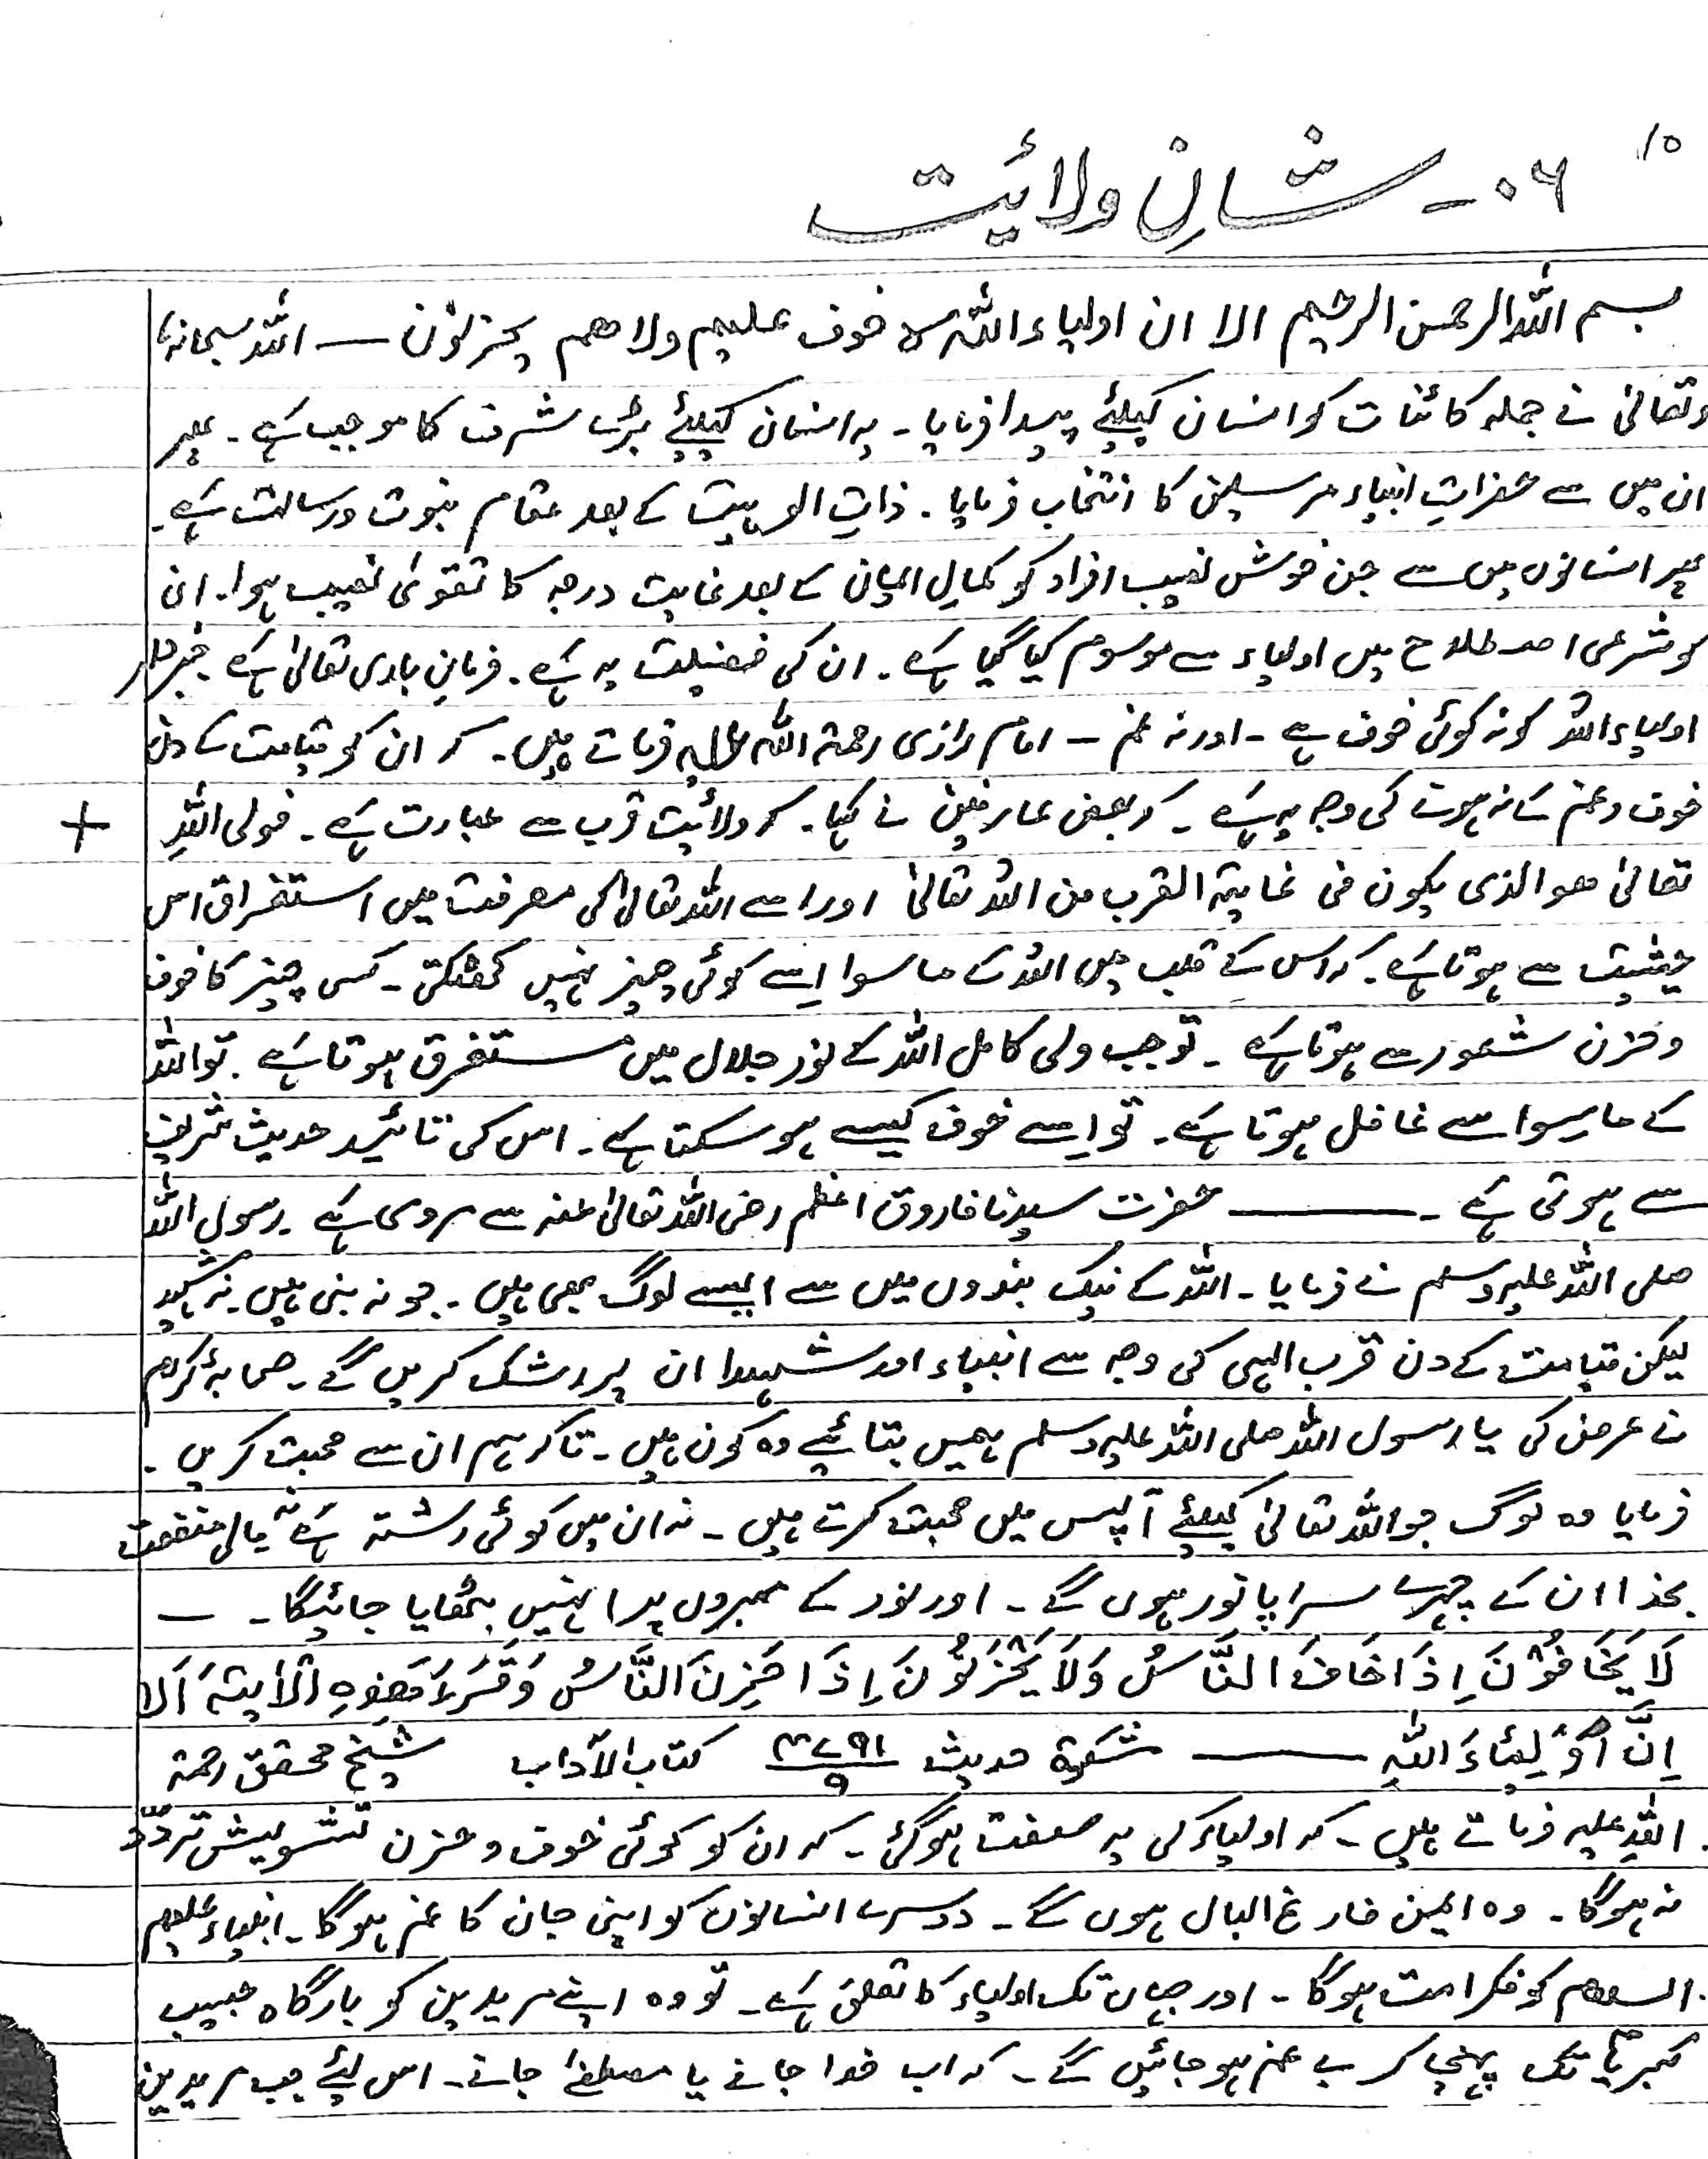 ۱۵
۰۶ - شانِ ولائیت
بسم اللہ الرحمن الرحیم الا ان اولیاء اللہ لا خوف علیہم ولا ھم یحزنون — اللہ سبحانہٗ
وتعالیٰ نے جملہ کائنات کو انسان کیلئے پیدا فرمایا۔ یہ انسان کیلئے بڑے شرف کا موجب ہے۔ پھر
ان میں سے حضراتِ انبیاء مرسلین کا انتخاب فرمایا۔ ذاتِ الوہیت کے بعد مقام نبوت ورسالت ہے۔
پھر انسانوں میں سے جن خوش نصیب افراد کو کمالِ ایمان کے بعد غایت درجہ کا تقویٰ نصیب ہوا۔ ان
کو شرعی اصطلاح میں اولیاء سے موسوم کیا گیا ہے۔ ان کی فضیلت یہ ہے۔ فرمانِ باری تعالیٰ ہے خبردار
اولیاء اللہ کو نہ کوئی خوف ہے - اور نہ غم - امام رازی رحمۃ اللہ علیہ فرماتے ہیں۔ کہ ان کو قیامت کے دن
خوف و غم کے نہ ہونے کی وجہ یہ ہے ۔ کہ بعض عارفین نے کہا۔ کہ ولائیت قرب سے عبارت ہے۔ فولی اللہِ +
تعالیٰ ھو الذی یکون فی غایۃ القرب من اللہ تعالیٰ اور اسے اللہ تعالیٰ کی معرفت میں استغراق اس
حیثیت سے ہوتا ہے۔ کہ اس کے قلب میں اللہ کے ماسوا اسے کوئی چیز نہیں کھٹکتی۔ کسی چیز کا خوف
و حزن شعور سے ہوتا ہے ۔ تو جب ولی کامل اللہ کے نور جلال میں مستغرق ہوتا ہے۔ تو اللہ
کے ماسوا سے غافل ہوتا ہے۔ تو اسے خوف کیسے ہو سکتا ہے۔ اس کی تائید حدیث شریف
سے ہوتی ہے ۔ —— حضرت سیدنا فاروق اعظم رضی اللہ تعالیٰ عنہ سے مروی ہے ۔ رسول اللہ
صلی اللہ علیہ وسلم نے فرمایا ۔ اللہ کے نیک بندوں میں سے ایسے لوگ بھی ہیں ۔ جو نہ نبی ہیں۔ نہ شہید
لیکن قیامت کے دن قرب الہی کی وجہ سے انبیاء اور شہدا ان پر رشک کریں گے ۔ صحابۂ کرام
نے عرض کی یا رسول اللہ صلی اللہ علیہ وسلم ہمیں بتائیے وہ کون ہیں۔ تاکہ ہم ان سے محبت کریں۔
فرمایا وہ لوگ جو اللہ تعالیٰ کیلئے آپس میں محبت کرتے ہیں۔ نہ ان میں کوئی رشتہ ہے نہ مالی منفعت
بخدا ان کے چہرے سراپا نور ہوں گے ۔ اور نور کے ممبروں پر انہیں بٹھایا جائیگا۔ —
لَا یَخَافُوْنَ اِذَا خَافَ النَّاسُ وَلَا یَحْزَنُوْنَ اِذَا حَزِنَ النَّاسُ وَقَرَءَ ھٰذِہِ الْاٰیَتَہَ اَلَا
اِنَّ اَوْلِیَاءَ اللہِ —— مشکوۃ حدیث ۴۷۹۱/۹ کتاب الآداب شیخ محقق رحمۃ
اللہِ علیہ فرماتے ہیں۔ کہ اولیاء کی یہ صفت ہوگی۔ کہ ان کو کوئی خوف و حزن تشویش تردّد
نہ ہوگا۔ وہ ایمن فارغ البال ہوں گے۔ دوسرے انسانوں کو اپنی جان کا غم ہوگا۔ انبیاء علیہم
السلام کو فکر امت ہوگا۔ اور جہاں تک اولیاء کا تعلق ہے۔ تو وہ اپنے مریدین کو بارگاہ حبیب
کبریا تک پہنچا کر بے غم ہو جائیں گے۔ کہ اب خدا جانے یا مصطفےٰ جانے۔ اس لئے جب مریدین